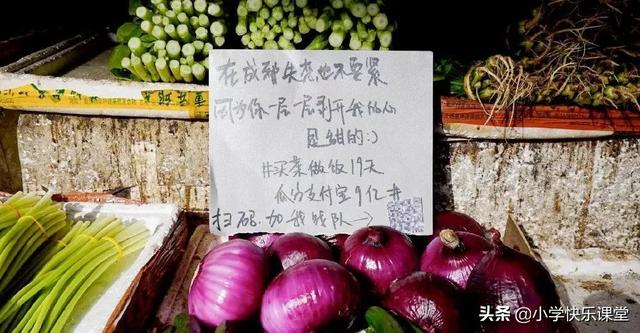 在成都失恋也不要紧
因为你一层一层剥开我的心
是甜的:)
#买菜做饭19天
瓜分支付宝9亿#
扫码加我战队→
头条 @小学快乐课堂